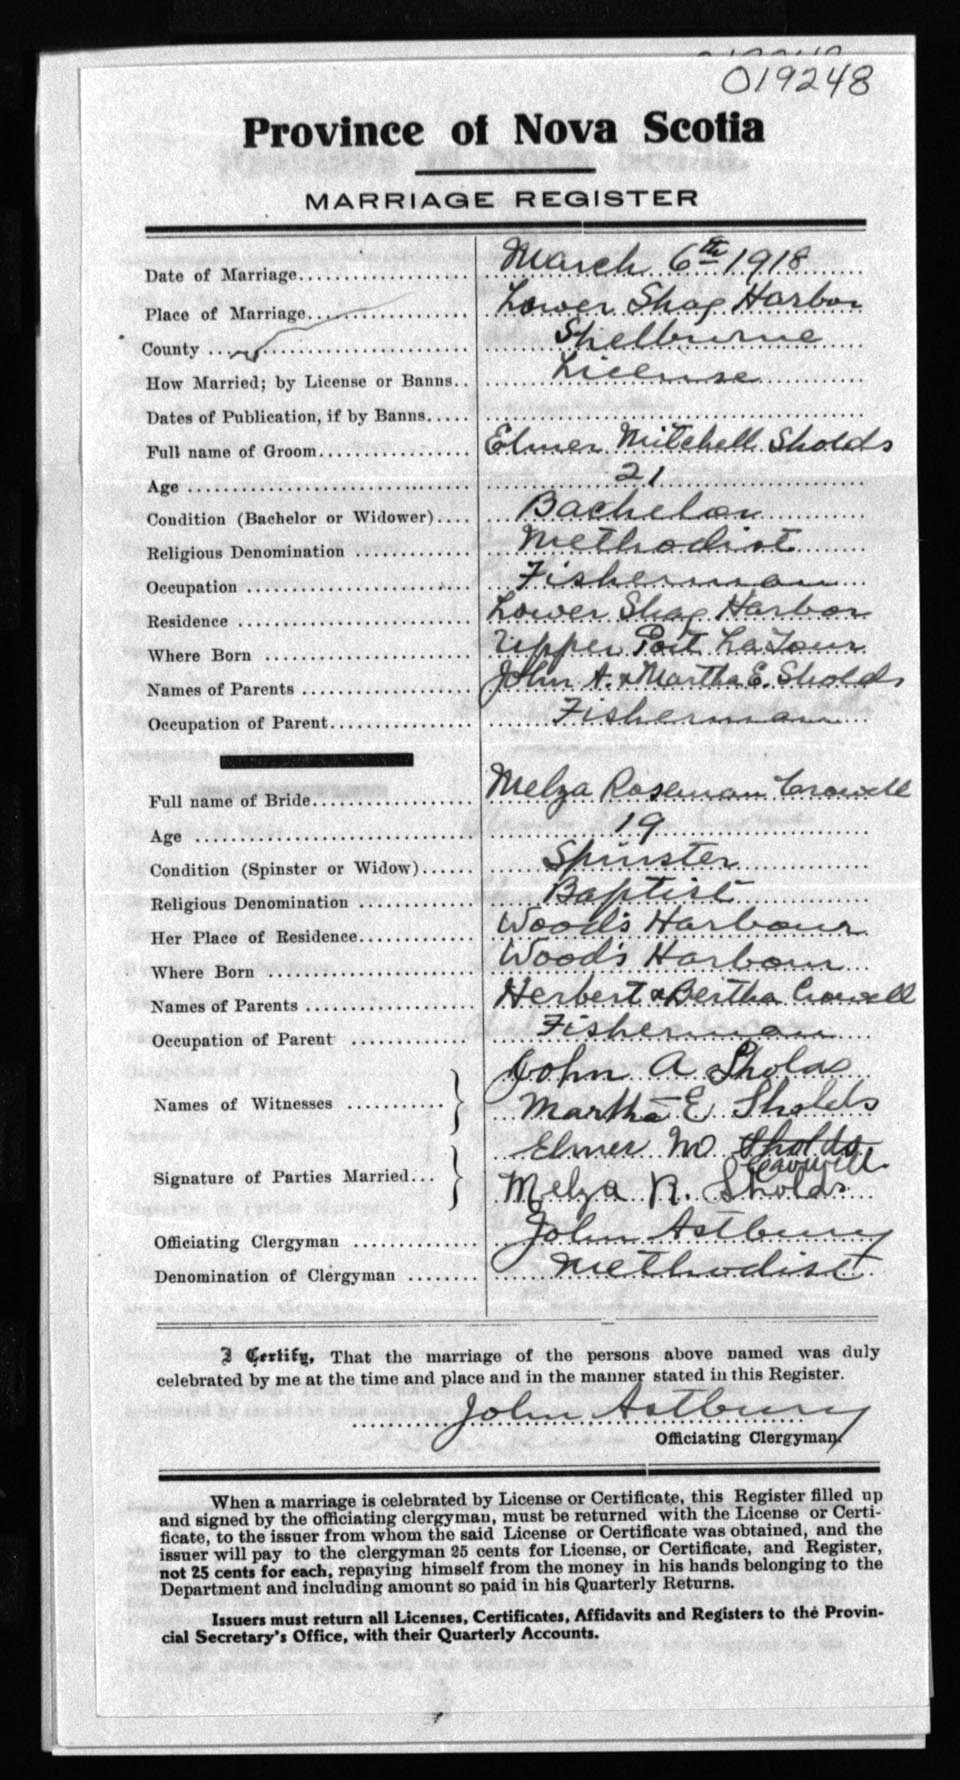 019248
Province of Nova Scotia
MARRIAGE REGISTER
Date of Marriage.................... March 6th 1918
Place of Marriage................... Lower Shag Harbor
County .............................. Shelburne
How Married; by License or Banns.. License
Dates of Publication, if by Banns.....
Full name of Groom.................. Elmer Mitchell Sholds
Age ................................. 21
Condition (Bachelor or Widower).... Bachelor
Religious Denomination ............. Methodist
Occupation .......................... Fisherman
Residence ........................... Lower Shag Harbor
Where Born ......................... Upper Port LaTour
Names of Parents ................... John A. & Martha E. Sholds
Occupation of Parent................ Fisherman
Full name of Bride.................. Melza Roseman Crowell
Age ................................. 19
Condition (Spinster or Widow)...... Spinster
Religious Denomination ............. Baptist
Her Place of Residence.............. Wood's Harbour
Where Born ......................... Wood's Harbour
Names of Parents ................... Herbert & Bertha Crowell
Occupation of Parent ............... Fisherman
Names of Witnesses ........... John A Sholds
Martha E Sholds
Signature of Parties Married... Elmer M Sholds
Crowell
Melza R. Sholds
Officiating Clergyman ............... John Astbury
Denomination of Clergyman ........ Methodist
I Certify, That the marriage of the persons above named was duly
celebrated by me at the time and place and in the manner stated in this Register.
John Astbury
Officiating Clergyman.
When a marriage is celebrated by License or Certificate, this Register filled up
and signed by the officiating clergyman, must be returned with the License or Certi-
ficate, to the issuer from whom the said License or Certificate was obtained, and the
issuer will pay to the clergyman 25 cents for License, or Certificate, and Register,
not 25 cents for each, repaying himself from the money in his hands belonging to the
Department and including amount so paid in his Quarterly Returns.
Issuers must return all Licenses, Certificates, Affidavits and Registers to the Provin-
cial Secretary's Office, with their Quarterly Accounts.